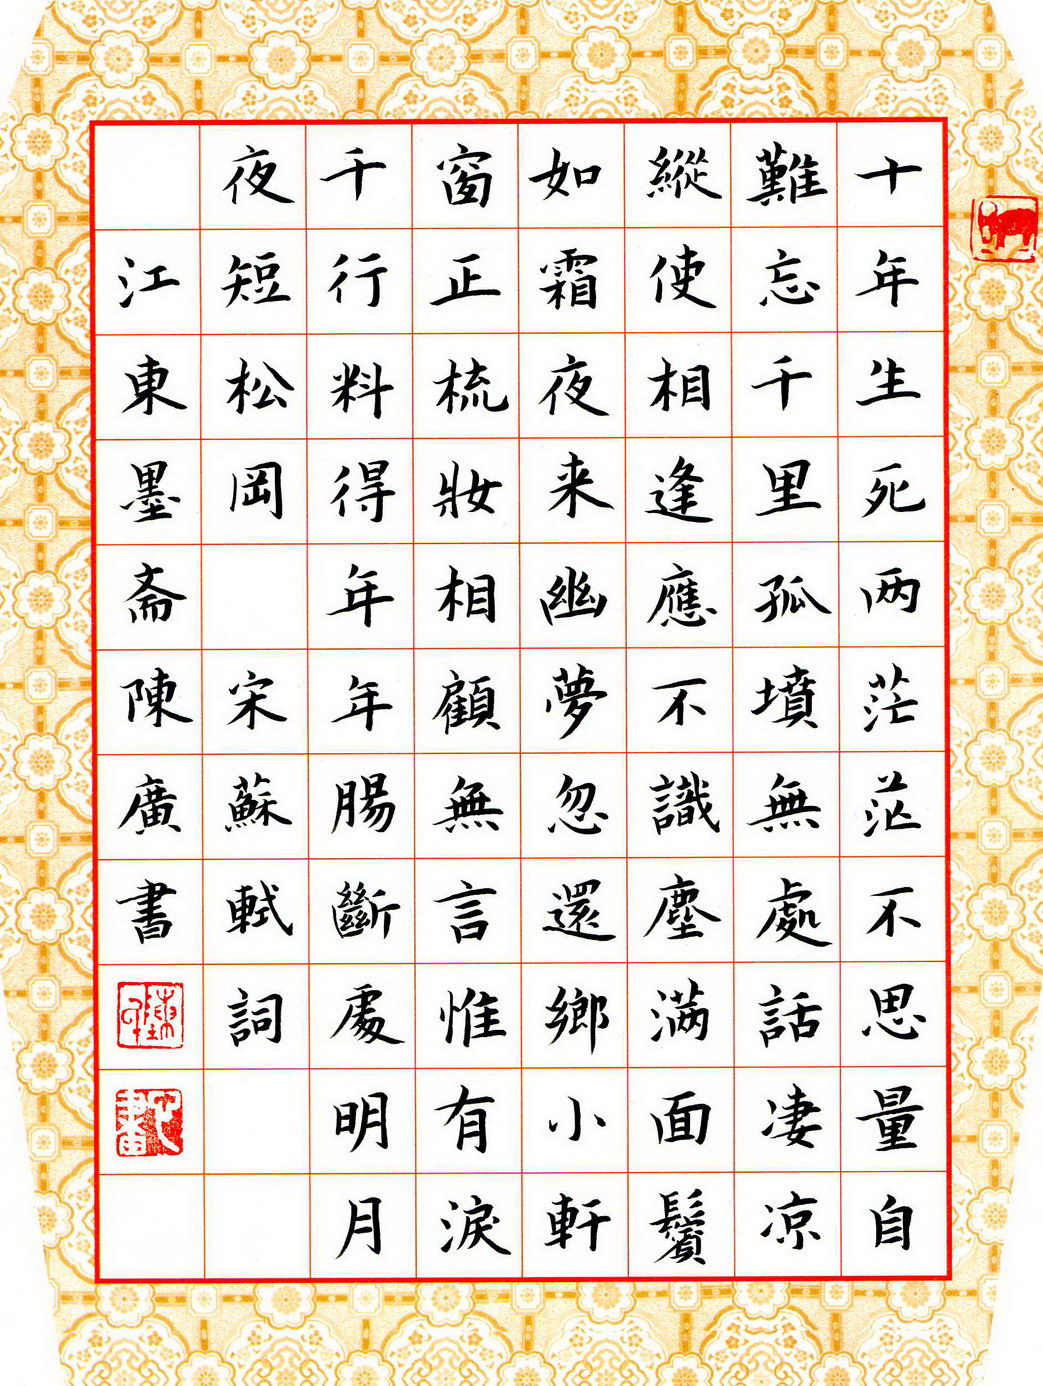 十年生死两茫茫不思量自
難忘千里孤墳無處話淒凉
縱使相逢應不識塵满面鬢
如霜夜来幽夢忽還鄉小軒
窗正梳妝相顧無言惟有淚
千行料得年年腸斷處明月
夜短松岡 宋蘇軾詞
江東墨斋陳廣書